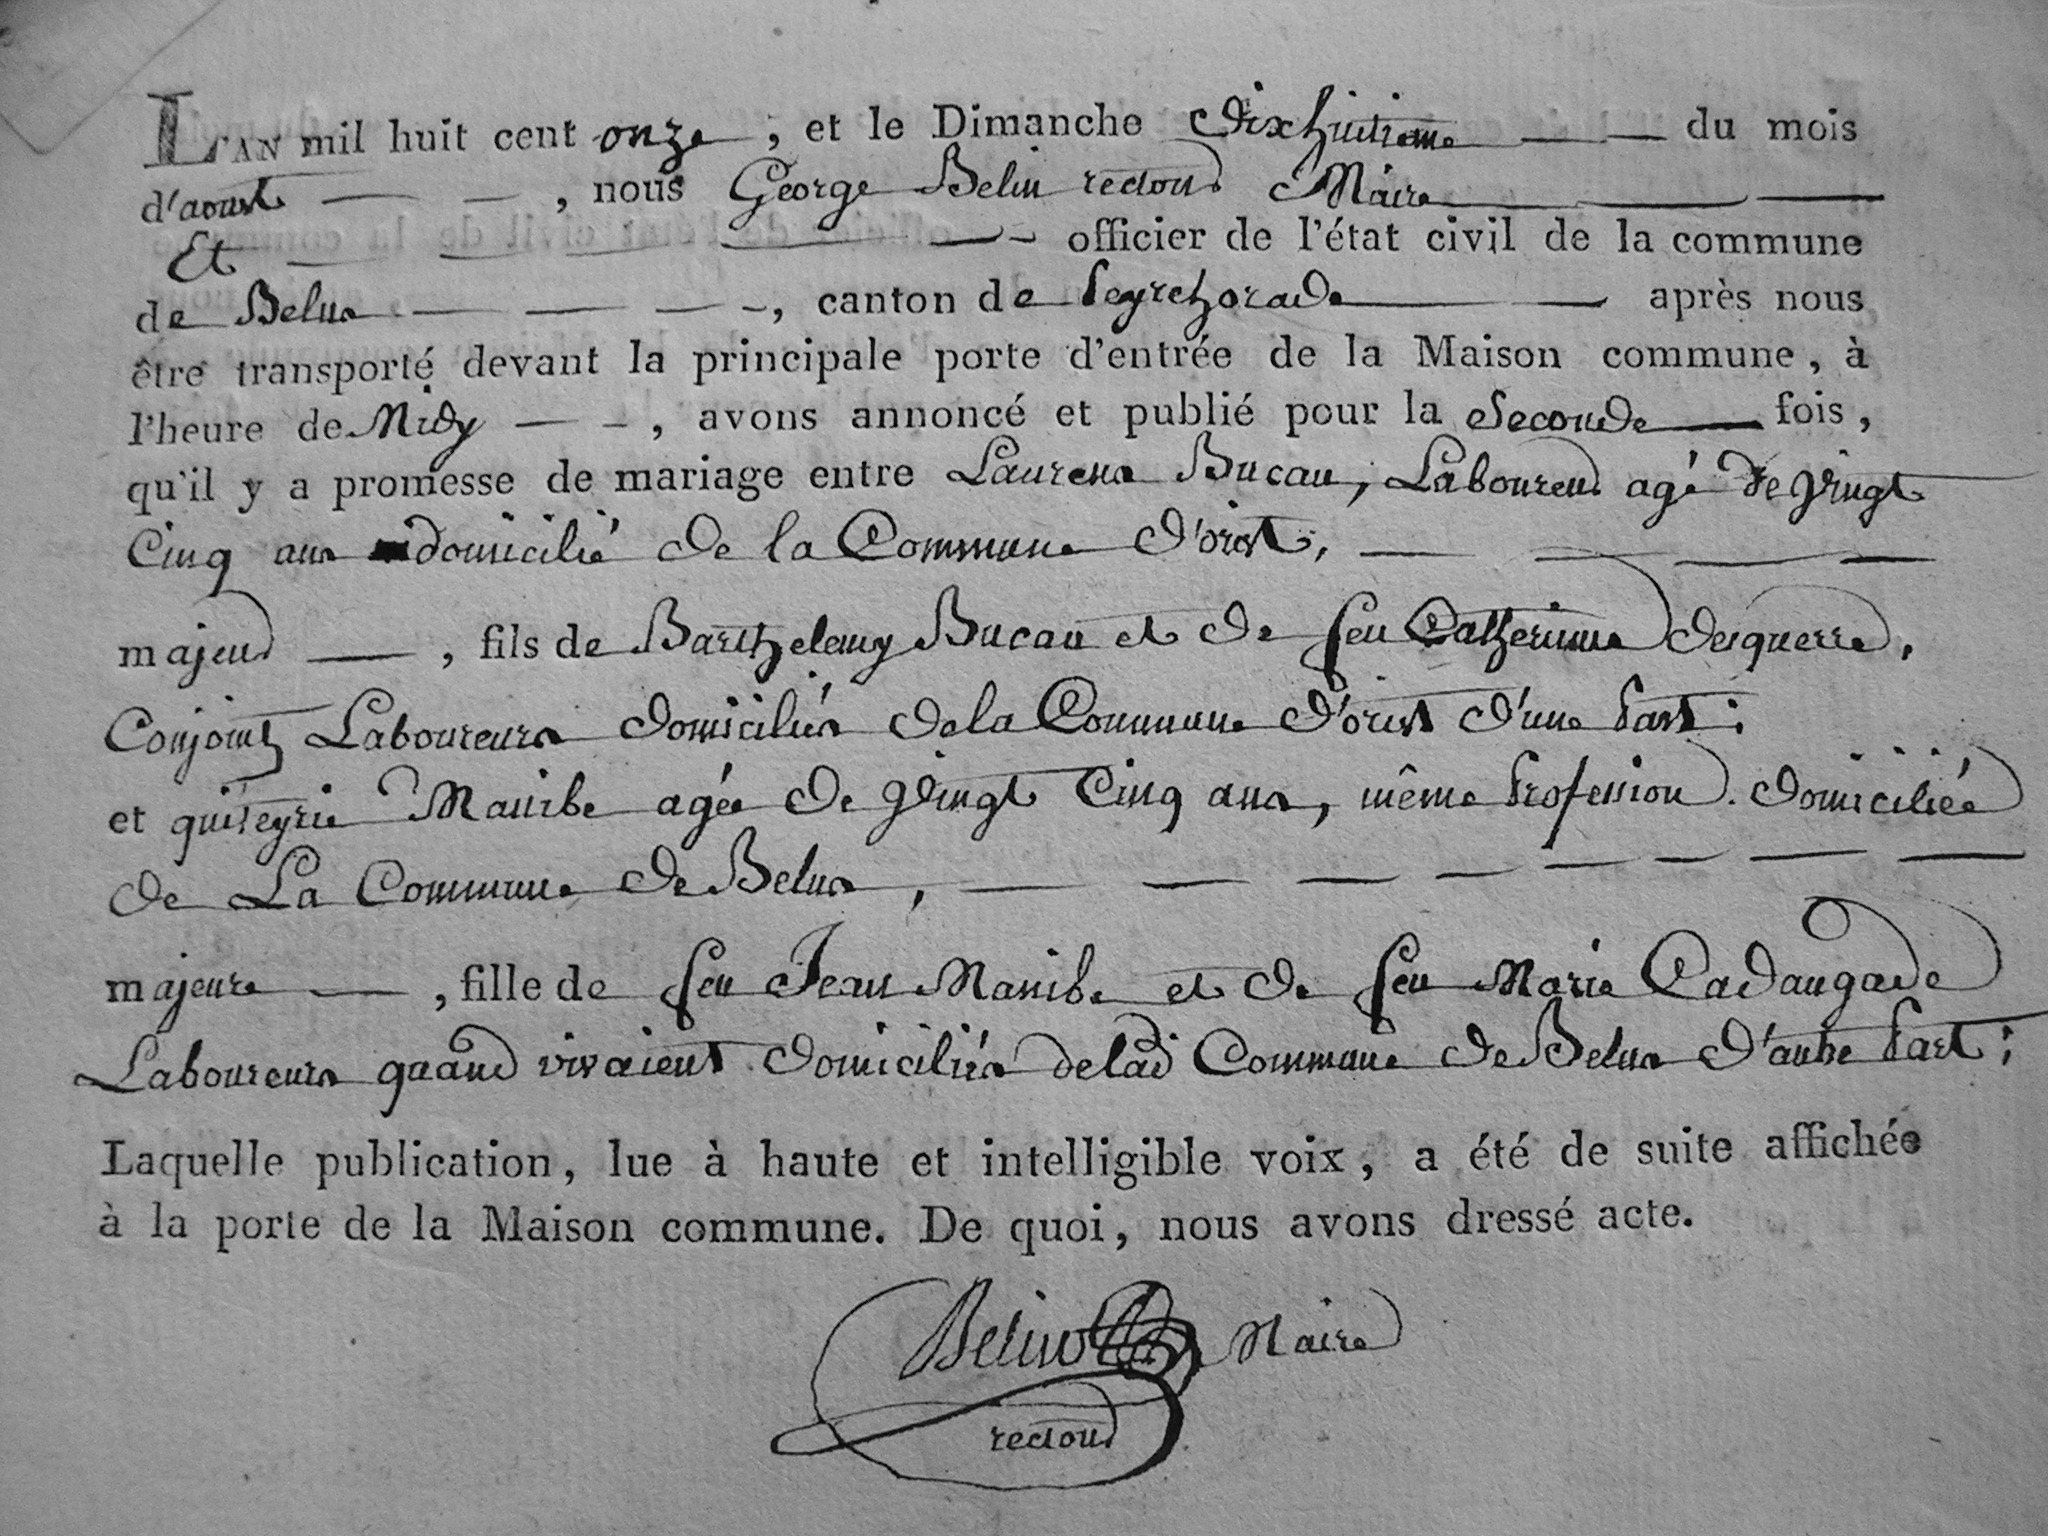 L'AN mil huit cent onze, et le Dimanche dixhuitieme du mois
d'aoust, nous George Belin rectour Maire
Et officier de l'état civil de la commune
de Belus, canton de Peyrehorade après nous
être transporté devant la principale porte d'entrée de la Maison commune, à
l'heure de Midy, avons annoncé et publié pour la Seconde fois,
qu'il y a promesse de mariage entre Laurens Bucau, Laboureur agé de vingt
Cinq ans domicilié de la Commune d'orist,
majeur, fils de Barthelemy Bucau et de feu Catherinne desguerre,
Conjoints Laboureurs domiciliés de la Commune d'orist d'une part;
et quiteyrie Manibe agée de vingt Cinq ans, même profession domiciliée
de La Commune de Belus,
majeure, fille de feu Jean Manibe et de feu Marie Cadaugade
Laboureurs quand vivaient domiciliés de lad Commune de Belus d'autre part;
Laquelle publication, lue à haute et intelligible voix, a été de suite affichée
à la porte de la Maison commune. De quoi, nous avons dressé acte.
Belin Maire
rectour